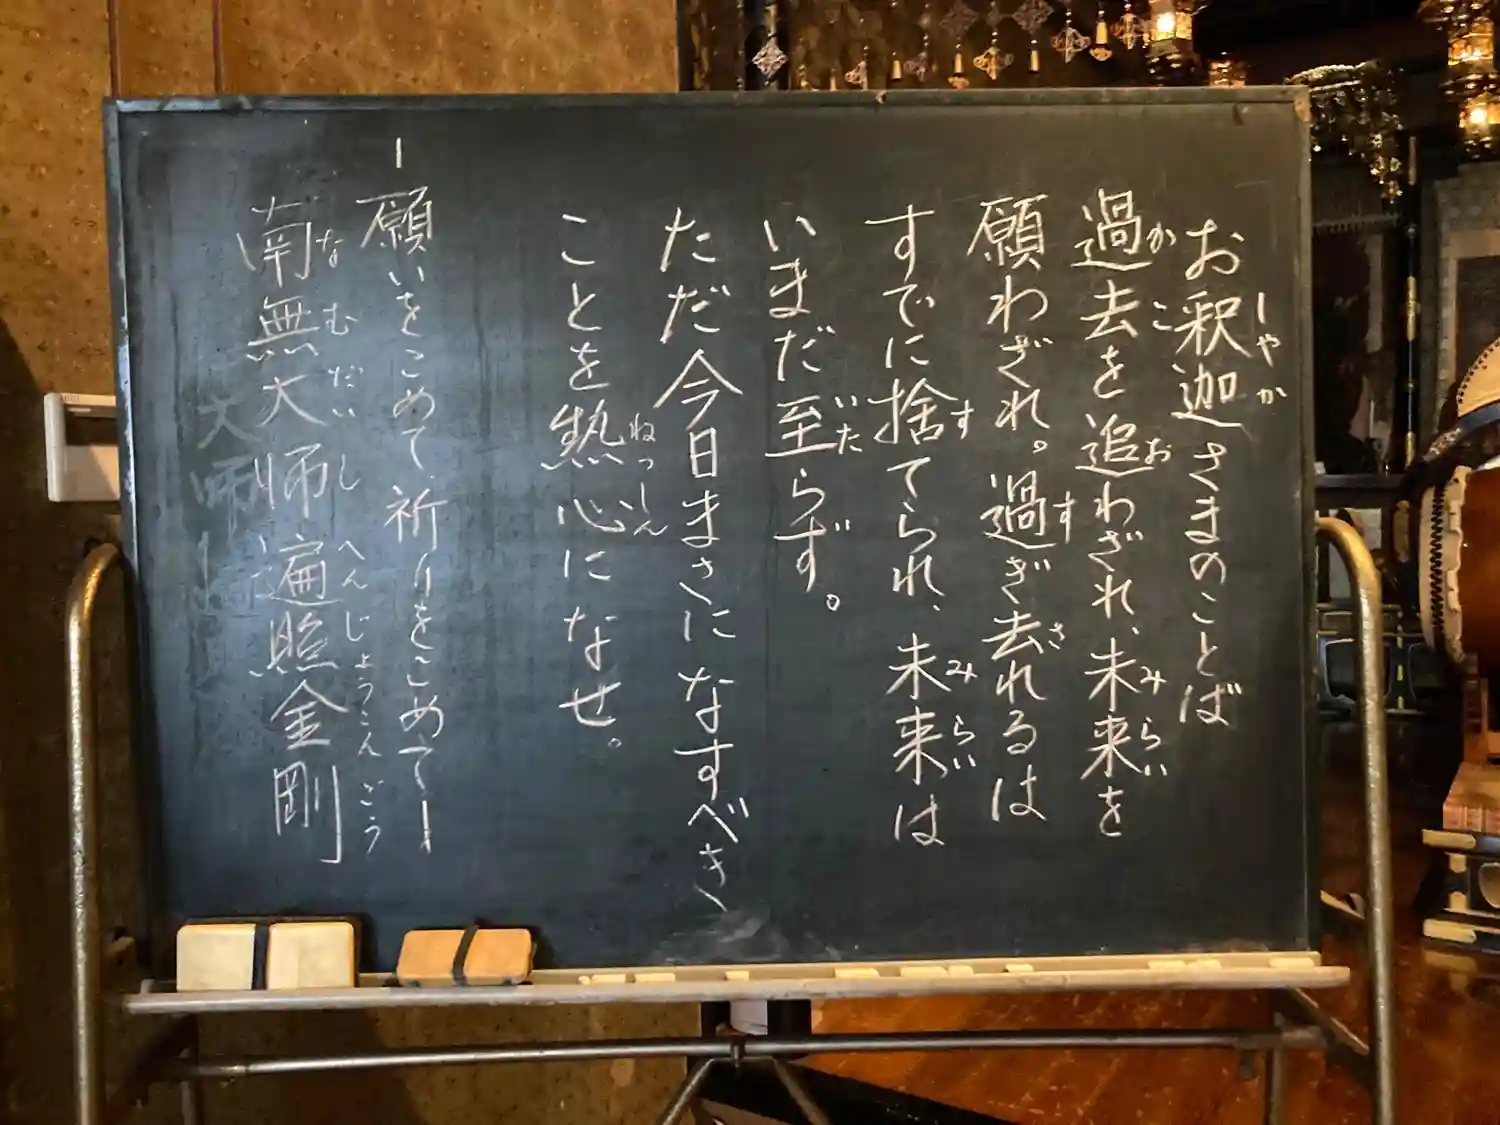 お釈迦さまのことば
過去を追わざれ、未来を
願わざれ。過ぎ去れるは
すでに捨てられ、未来は
いまだ至らず。
ただ今日まさになすべき
ことを熱心になせ。
ー願いをこめて祈りをこめてー
南無大師遍照金剛
しゃか
かこ
お
みらい
す
さ
す
みらい
いた
ねっしん
なむだいしへんじょうこんごう